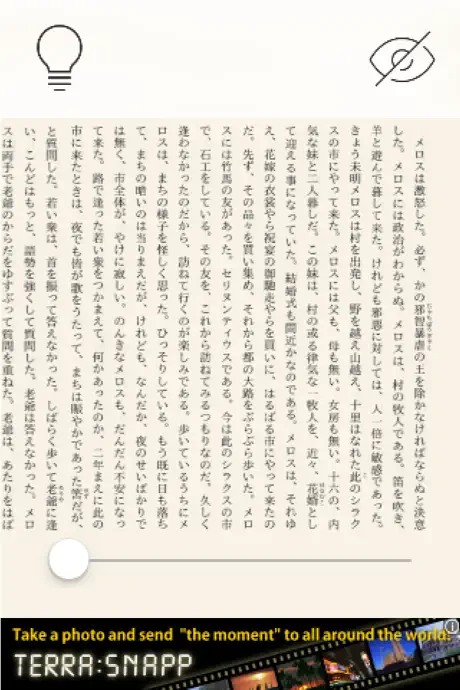 メロスは激怒した。必ず、かの邪智暴虐の王を除かなければならぬと決意
した。メロスには政治がわからぬ。メロスは、村の牧人である。笛を吹き、
羊と遊んで暮して来た。けれども邪悪に対しては、人一倍に敏感であった。
きょう未明メロスは村を出発し、野を越え山越え、十里はなれた此のシラク
スの市にやって来た。メロスには父も、母も無い。女房も無い。十六の、内
気な妹と二人暮しだ。この妹は、村の或る律気な一牧人を、近々、花婿とし
て迎える事になっていた。結婚式も間近かなのである。メロスは、それゆ
え、花嫁の衣裳やら祝宴の御馳走やらを買いに、はるばる市にやって来たの
だ。先ず、その品々を買い集め、それから都の大路をぶらぶら歩いた。メロ
スには竹馬の友があった。セリヌンティウスである。今は此のシラクスの市
で、石工をしている。その友を、これから訪ねてみるつもりなのだ。久しく
逢わなかったのだから、訪ねて行くのが楽しみである。歩いているうちにメ
ロスは、まちの様子を怪しく思った。ひっそりしている。もう既に日も落ち
て、まちの暗いのは当りまえだが、けれども、なんだか、夜のせいばかりで
は無く、市全体が、やけに寂しい。のんきなメロスも、だんだん不安になっ
て来た。路で逢った若い衆をつかまえて、何かあったのか、二年まえに此の
市に来たときは、夜でも皆が歌をうたって、まちは賑やかであった筈だが、
と質問した。若い衆は、首を振って答えなかった。しばらく歩いて老爺に逢
い、こんどはもっと、語勢を強くして質問した。老爺は答えなかった。メロ
スは両手で老爺のからだをゆすぶって質問を重ねた。老爺は、あたりをはば
Take a photo and send "the moment" to all around the world.
TERRA:SNAPP